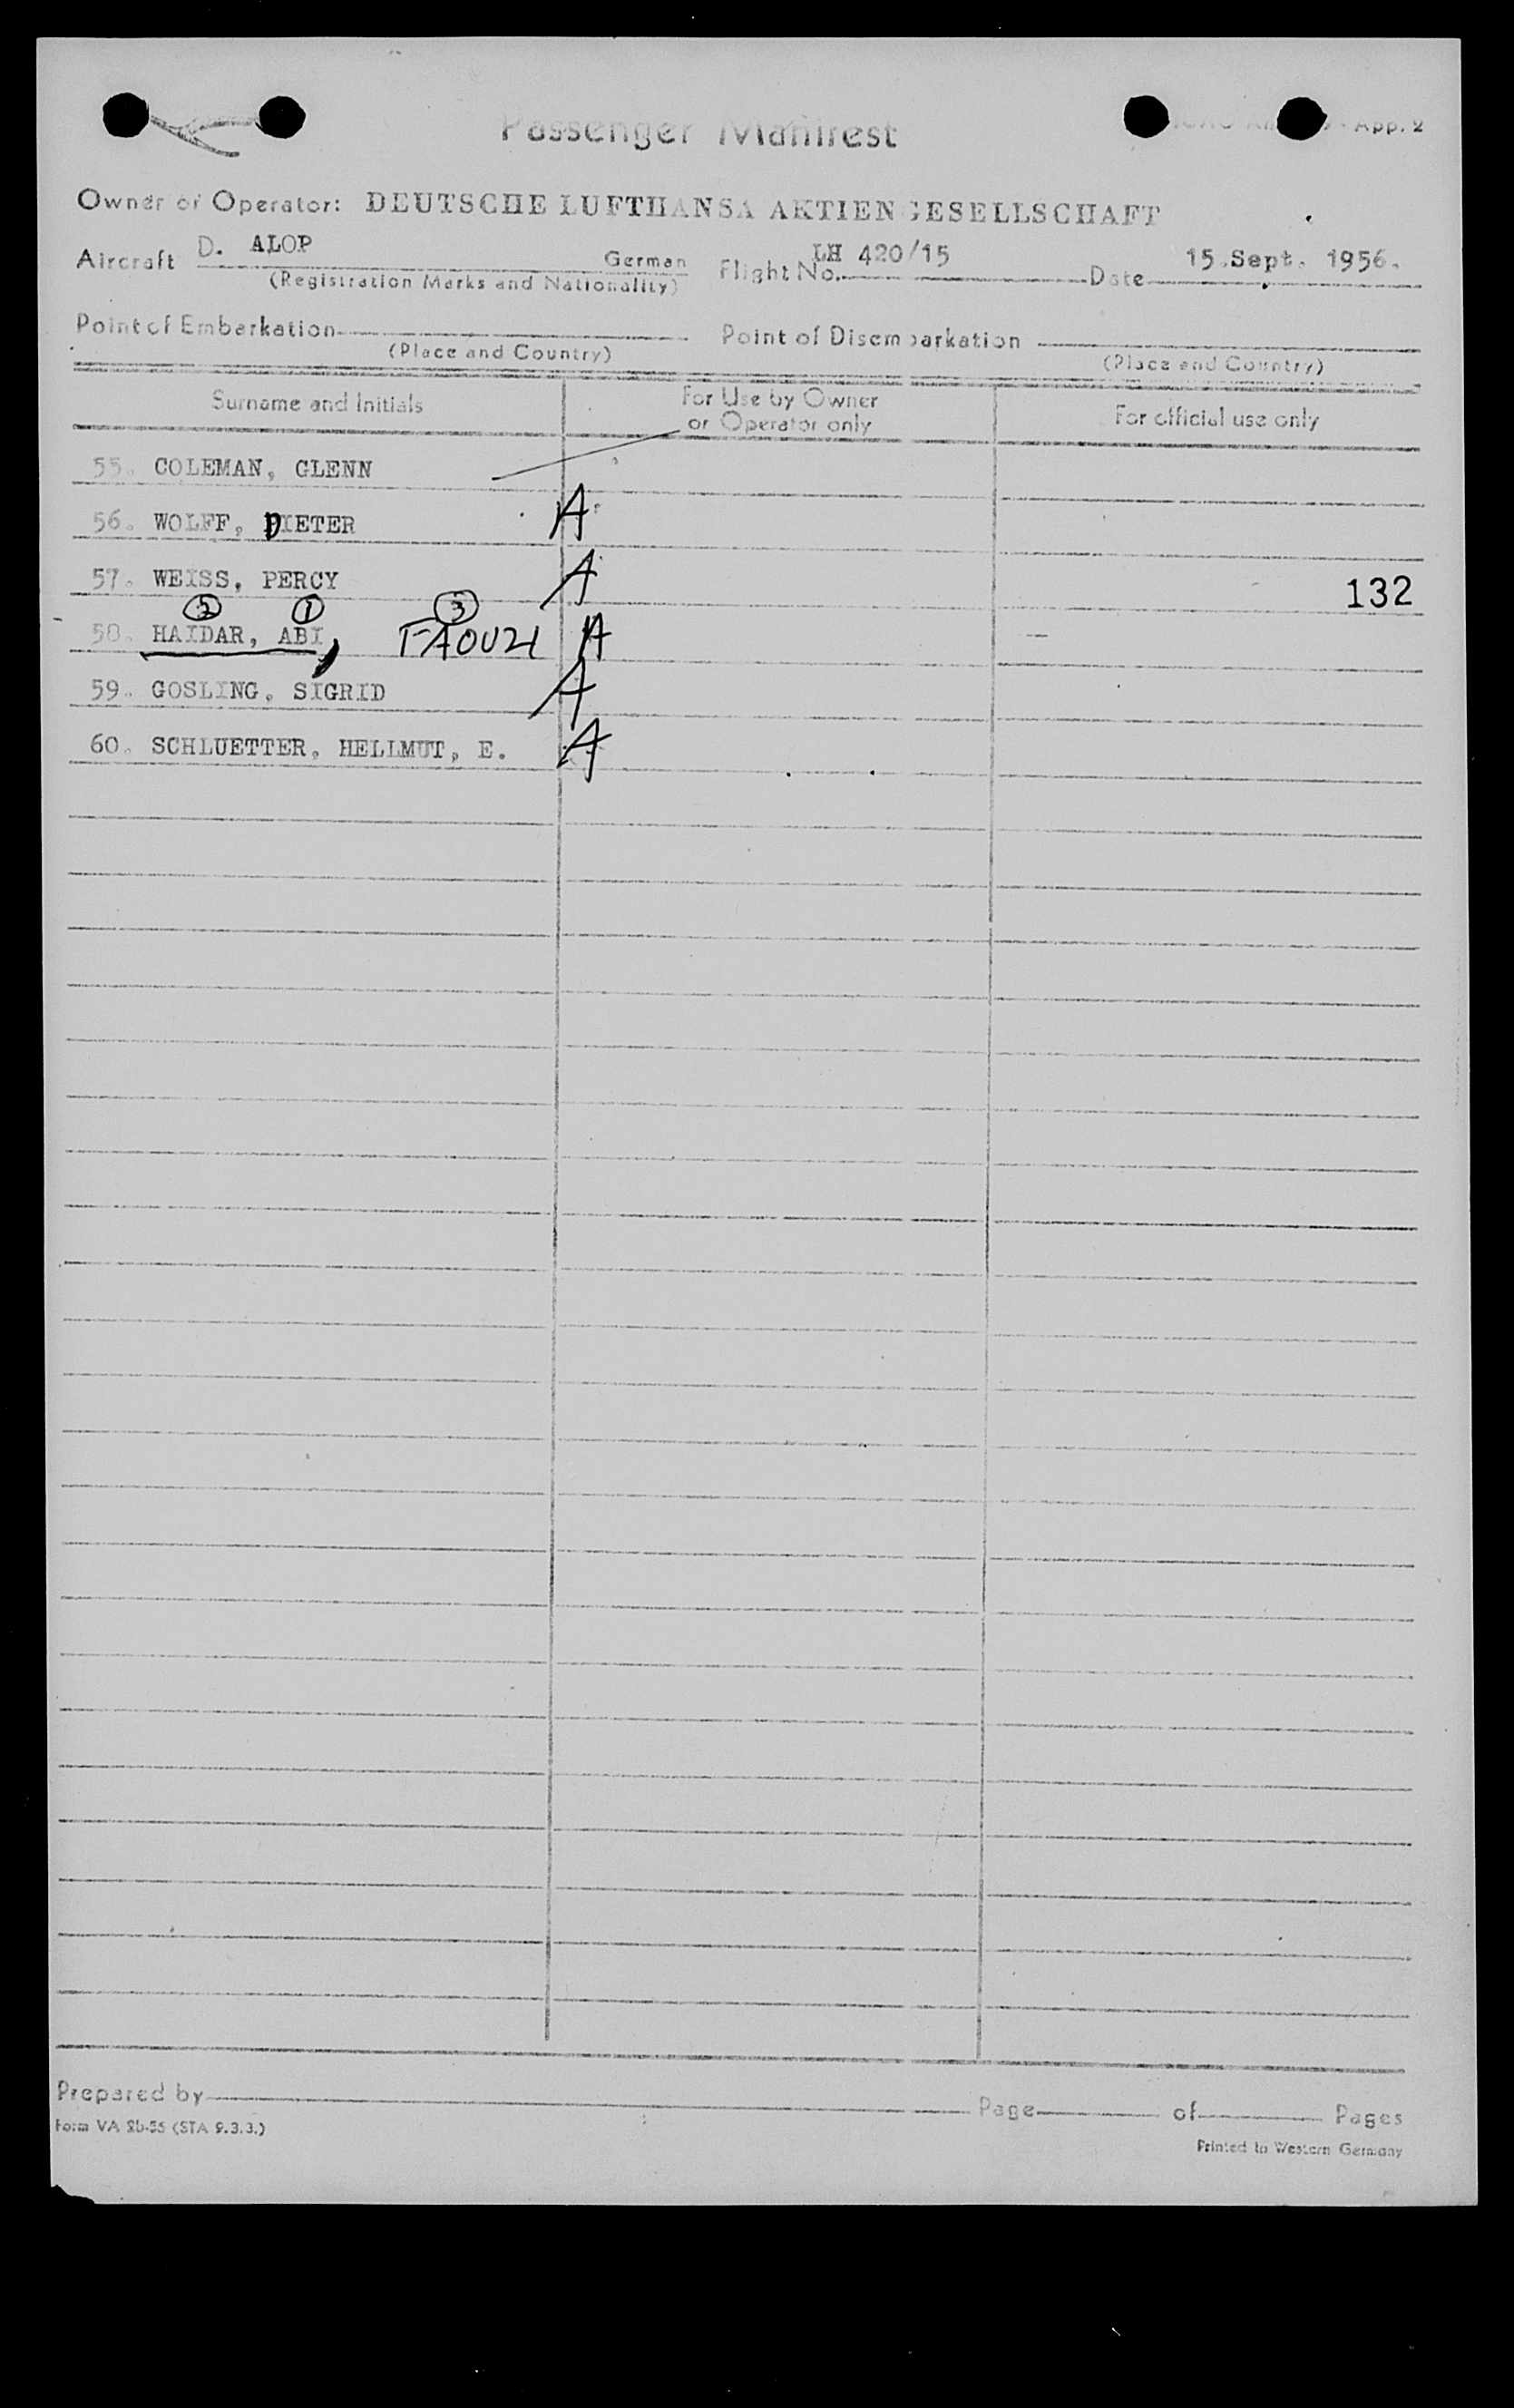 Passenger Manifest
App. 2
Owner or Operator: DEUTSCHE LUFTHANSA AKTIENGESELLSCHAFT
Aircraft D. ALOP German Flight No. LH 420/15 Date 15.Sept. 1956.
(Registration Marks and Nationality)
Point of Embarkation Point of Disembarkation
(Place and Country) (Place and Country)
Surname and Initials For Use by Owner or Operator only For official use only
55. COLEMAN, GLENN
56. WOLFF, DIETER A
57. WEISS, PERCY A 132
2 1 3
58. HAIDAR, ABI, FAOUZI A
59. GOSLING, SIGRID A
60. SCHLUETTER, HELLMUT, E. A
Prepared by Page of Pages
Form VA 2b-55 (STA 9.3.3.)
Printed in Western Germany